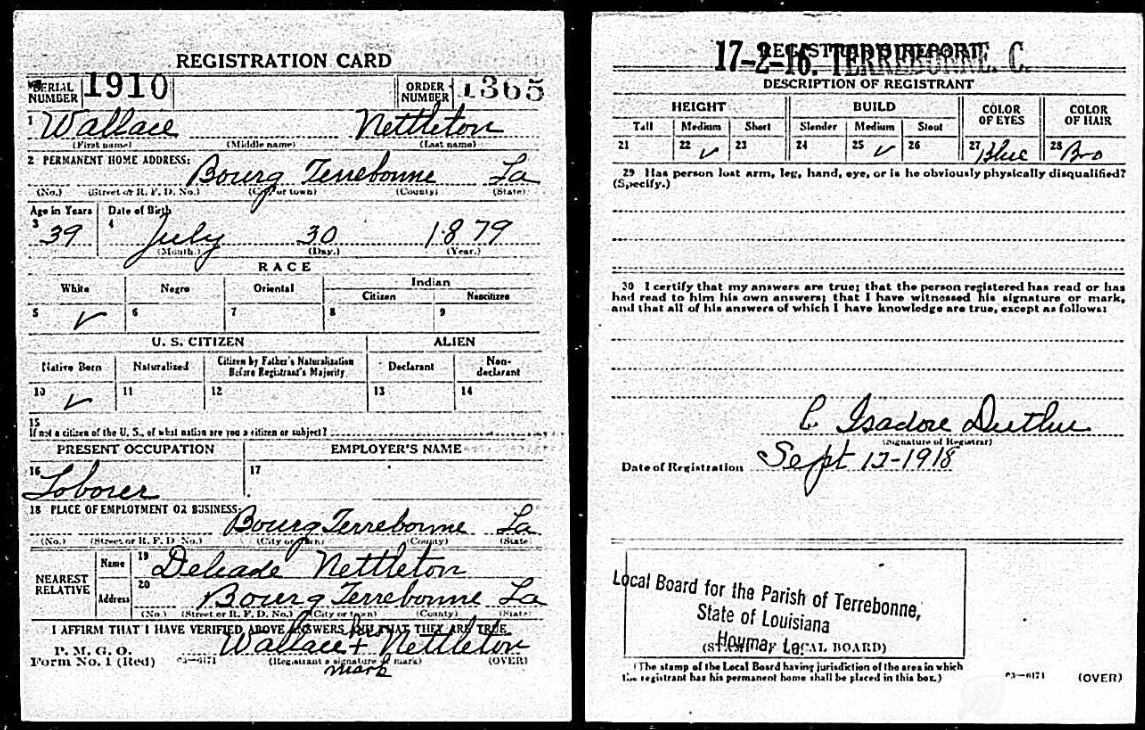 REGISTRATION CARD
SERIAL NUMBER 1910 ORDER NUMBER 1365
1 Wallace Nettleton
(First name) (Middle name) (Last name)
2 PERMANENT HOME ADDRESS:
Bourg Terrebonne La
(No.) (Street or R. F. D. No.) (City or town) (County) (State)
Age in Years Date of Birth
3 39 4 July 30 1879
(Month.) (Day.) (Year.)
RACE
White Negro Oriental Indian
Citizen Noncitizen
5 ✓ 6 7 8 9
U. S. CITIZEN ALIEN
Native Born Naturalized Citizen by Father's Naturalization Before Registrant's Majority Declarant Non-declarant
10 ✓ 11 12 13 14
15
If not a citizen of the U. S., of what nation are you a citizen or subject?
PRESENT OCCUPATION EMPLOYER'S NAME
16 Loborer 17
18 PLACE OF EMPLOYMENT OR BUSINESS:
Bourg Terrebonne La
(No.) (Street or R. F. D. No.) (City or town) (County) (State)
NEAREST RELATIVE Name 19 Deleade Nettleton
Address 20 Bourg Terrebonne La
(No.) (Street or R. F. D. No.) (City or town) (County) (State)
I AFFIRM THAT I HAVE VERIFIED ABOVE ANSWERS AND THAT THEY ARE TRUE
P. M. G. O.
Form No. 1 (Red) 03—6171 Wallace his + mark Nettleton
(Registrant's signature or mark) (OVER)
17-2-16. TERREBONNE. C.
REGISTRAR'S REPORT
DESCRIPTION OF REGISTRANT
HEIGHT BUILD COLOR OF EYES COLOR OF HAIR
Tall Medium Short Slender Medium Stout
21 22 ✓ 23 24 25 ✓ 26 27 Blue 28 Bro
29 Has person lost arm, leg, hand, eye, or is he obviously physically disqualified?
(Specify.)
30 I certify that my answers are true; that the person registered has read or has
had read to him his own answers; that I have witnessed his signature or mark,
and that all of his answers of which I have knowledge are true, except as follows:
Isadore
(Signature of Registrar)
Date of Registration Sept 12-1918
Local Board for the Parish of Terrebonne,
State of Louisiana
(STAMP OF LOCAL BOARD)
(The stamp of the Local Board having jurisdiction of the area in which
the registrant has his permanent home shall be placed in this box.)
03—6171 (OVER)